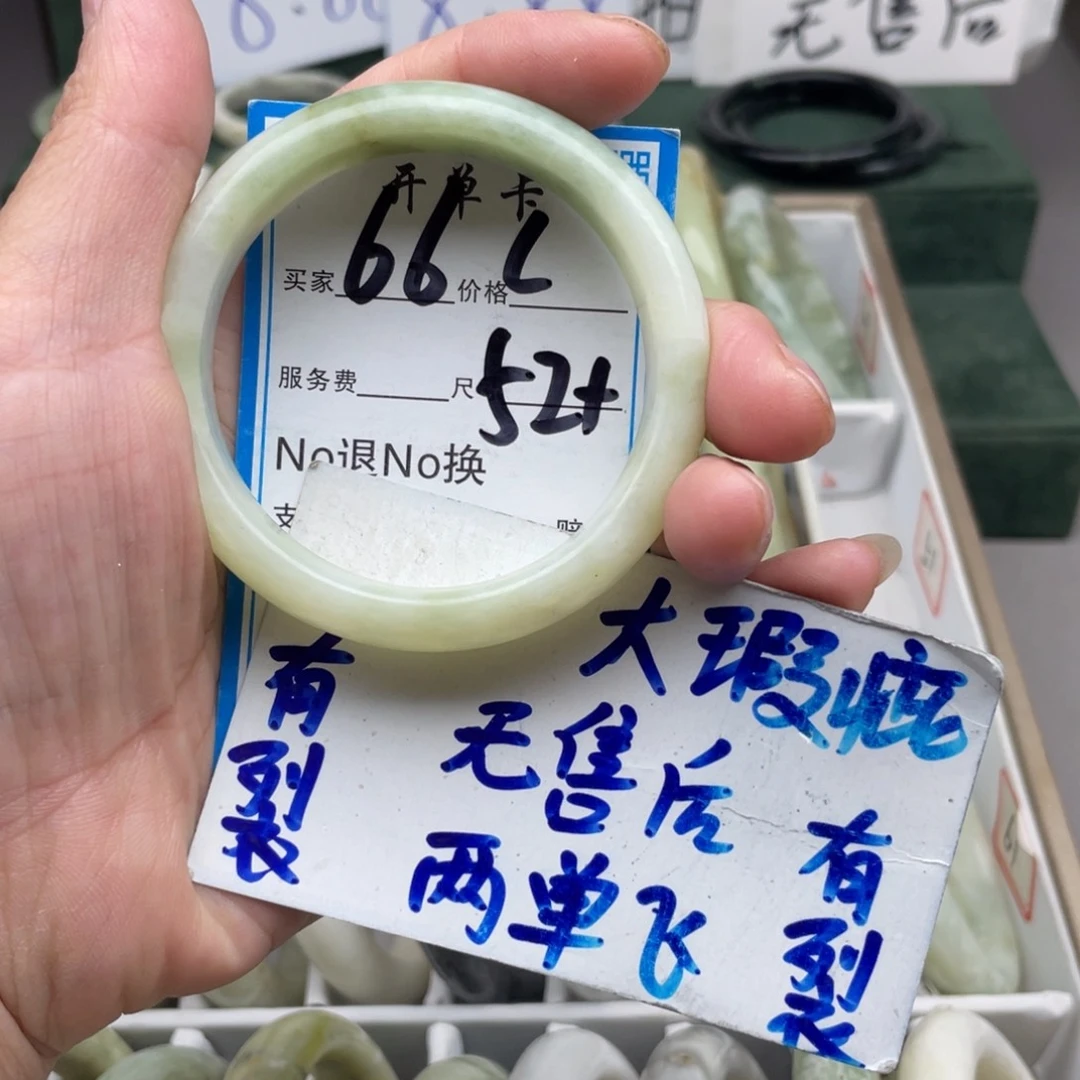 无售后
器
开单卡
买家 66 价格 L
服务费 尺 52+
No退No换
支 赔
大瑕疵
无售后
两单飞
有裂
有裂